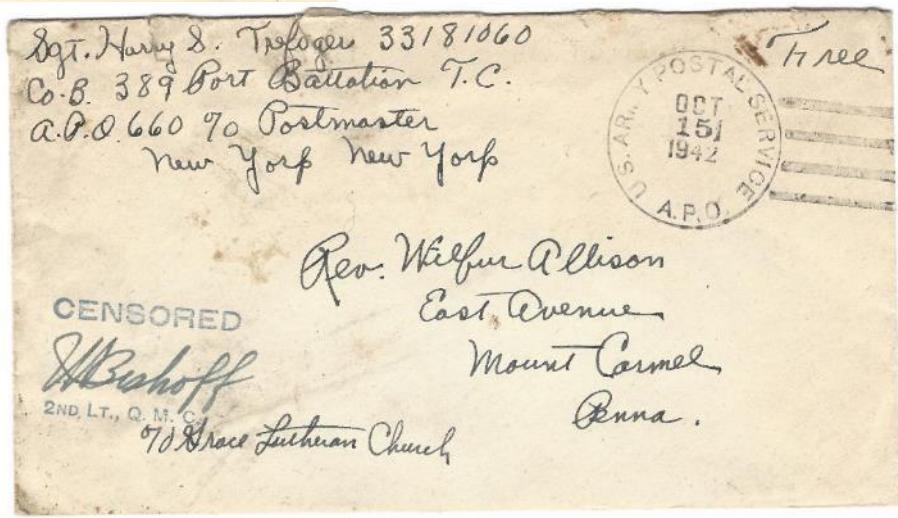 Sgt. Harry S. Trefoger 33181060
Co. B. 389 Port Battalion T.C.
A.P.O. 660 c/o Postmaster
New York New York
Free
U.S. ARMY POSTAL SERVICE
OCT
15
1942
A.P.O.
Rev. Wilbur Allison
East Avenue
Mount Carmel
Penna.
CENSORED
Bishoff
2ND LT., Q. M. C.
c/o Grace Lutheran Church